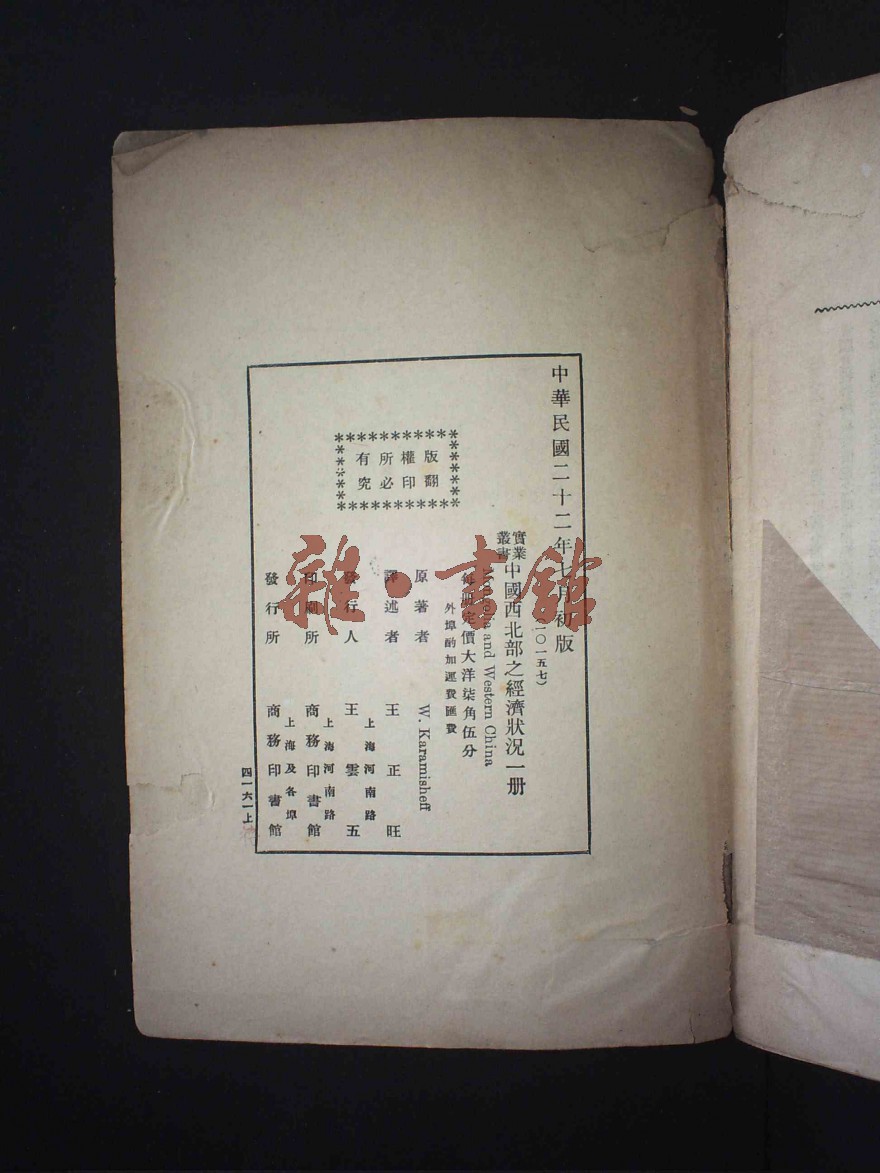 中華民國二十二年七月初版
(一〇一五七)
實業
叢書
中國西北部之經濟狀況一册
Mongolia and Western China
每册定價大洋柒角伍分
外埠酌加運費匯費
版權所有
翻印必究
原著者 W. Karamisheff
譯述者 王正旺
上海河南路
發行人 王雲五
上海河南路
印刷所 商務印書館
上海及各埠
發行所 商務印書館
四一六一上
雜·書館